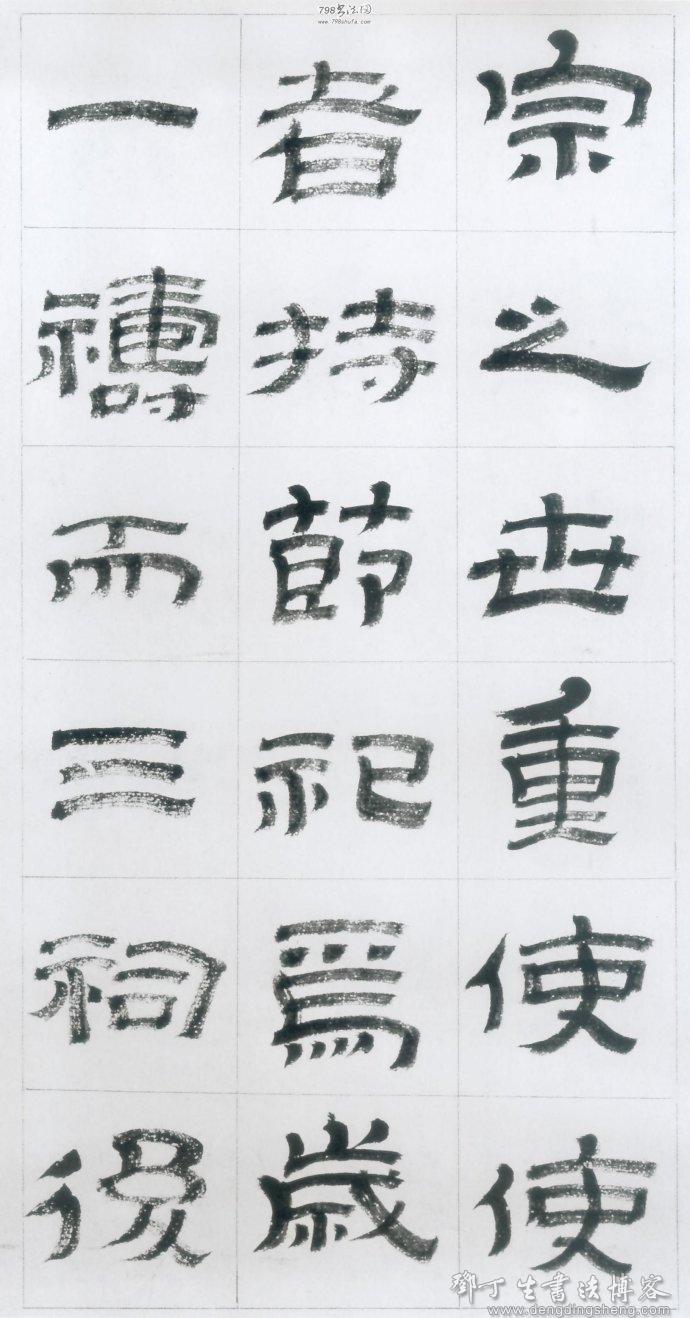 798书法网
www.798shufa.com
宗之世重使使
者持節祀焉歲
一禱而三祠後
鄧丁生書法博客
www.dengdingsheng.com